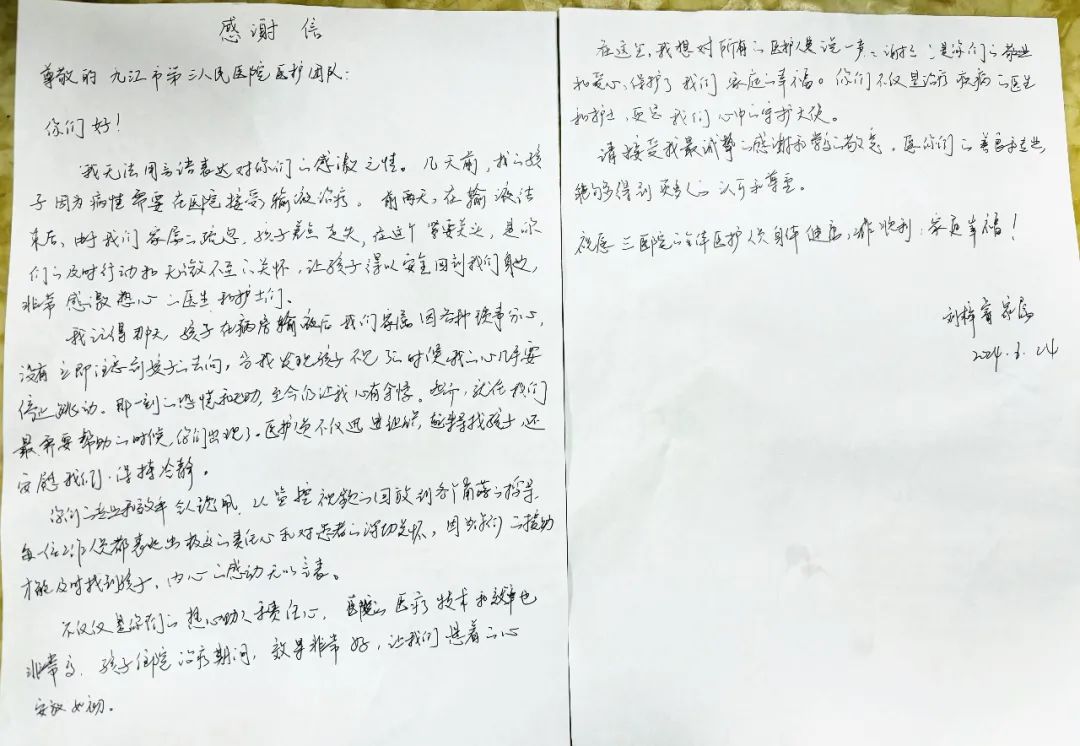 感谢信
尊敬的九江市第三人民医院医护团队：
你们好！
我无法用言语表达对你们的感激之情。几天前，我的孩
子因为病情需要在医院接受输液治疗。前两天，在输液结
束后，由于我们家属的疏忽，孩子差点走失，在这个紧要关头，是你
们的及时行动和无微不至的关怀，让孩子得以安全回到我们身边，
非常感激热心的医生和护士们。
我记得那天，孩子在病房输液后我们家属因各种琐事分心，
没有立即注意到孩子的去向，当我发现孩子不见的时候我的心几乎要
停止跳动。那一刻的恐慌和无助，至今仍让我心有余悸。然而，就在我们
最需要帮助的时候，你们出现了。医护人员不仅迅速组织，寻找孩子，还
安慰我们，保持冷静。
你们的专业和效率令人佩服，从监控视频的回放到各个角落的搜寻，
每一位工作人员都表现出极大的责任心和对患者的深切关怀，因为你们的援助
才能及时找到孩子，内心的感动无以言表。
不仅仅是你们的热心助人和责任心，医院的医疗技术和效率也
非常高，孩子住院治疗期间，效果非常好，让我们悬着的心
安放如初。
在这里，我想对所有的医护人员说一声：谢谢！是你们的敬业
和爱心，保护了我们家庭的幸福。你们不仅是治疗疾病的医生
和护士，更是我们心中的守护天使。
请接受我最诚挚的感谢和崇高的敬意，愿你们的善良和专业，
能够得到更多人的认可和尊重。
祝愿三医院的全体医护人员身体健康，工作顺利，家庭幸福！
刘梓睿家属
2024.3.24